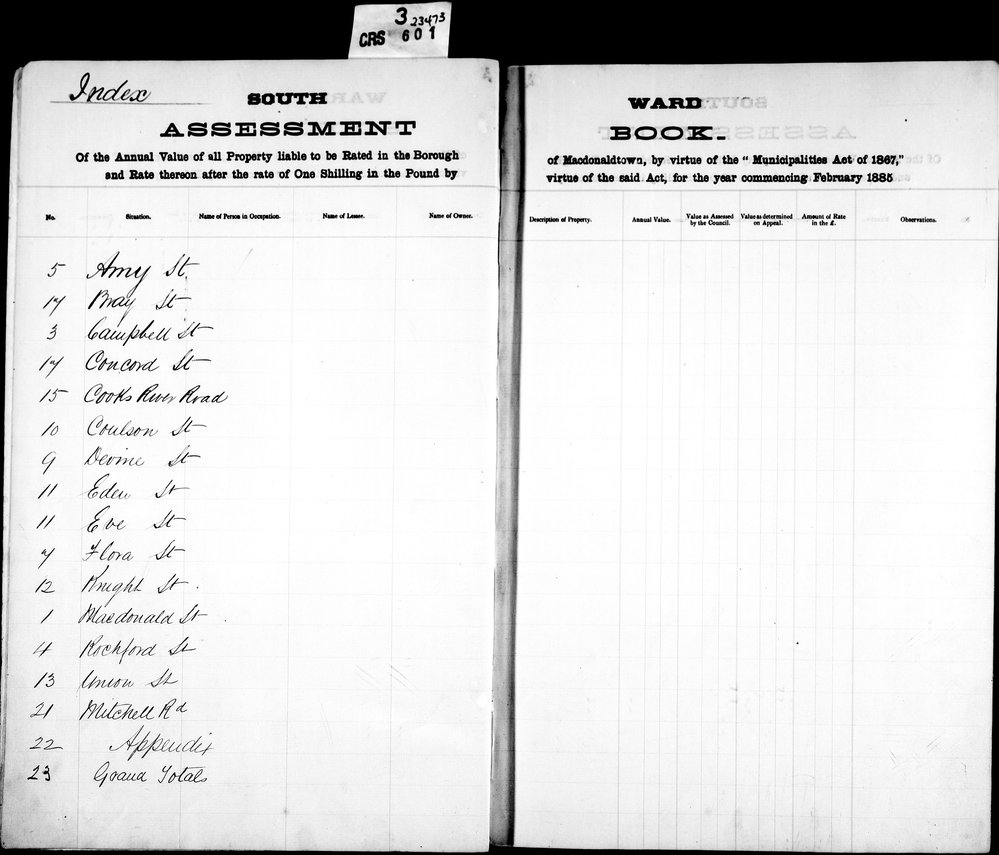 3 23473
CRS 601
Index
SOUTH WARD
ASSESSMENT BOOK.
Of the Annual Value of all Property liable to be Rated in the Borough of Macdonaldtown, by virtue of the "Municipalities Act of 1867,"
and Rate thereon after the rate of One Shilling in the Pound by virtue of the said Act, for the year commencing February 1885
No. Situation. Name of Person in Occupation. Name of Lessee. Name of Owner. Description of Property. Annual Value. Value as Assessed by the Council. Value as determined on Appeal. Amount of Rate in the £. Observations.
5 Amy St.
17 Bray St
3 Campbell St
17 Concord St
15 Cooks River Road
10 Coulson St
9 Devine St
11 Eden St
11 Eve St
7 Flora St
12 Knight St.
1 Macdonald St
4 Rochford St
13 Union St
21 Mitchell Rd
22 Appendix
23 Grand Totals